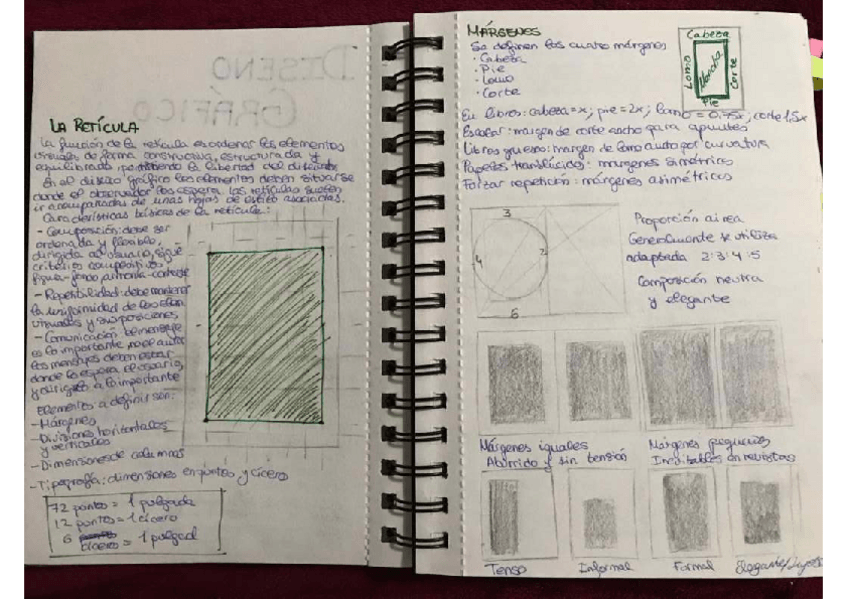 LA RETÍCULA
La función de la retícula es ordenar los elementos
visuales de forma constructiva, estructurada y
equilibrada permitiendo la libertad del diseñador
En el diseño gráfico los elementos deben situarse
donde el observador los espera. Las retículas suelen
ir acompañadas de unas hojas de estilo asociadas.
Características básicas de la retícula:
- Composición: debe ser
ordenada y flexible,
dirigida al usuario, sigue
criterios compositivos
figura-fondo, armonía-contraste
- Repetibilidad: debe mantener
la uniformidad de los elem.
visuales y sus posiciones
- Comunicación: el mensaje
es lo importante, no el autor
los mensajes deben estar
donde lo espera el usuario,
y dirigido a lo importante
Elementos a definir son:
- Márgenes
- Divisiones horizontales
y verticales
- Dimensiones de columnas
- Tipografía: dimensiones en puntos y cícero
72 puntos = 1 pulgada
12 puntos = 1 cícero
6
cíceros = 1 pulgad
DISEÑO
GRÁFICO
MÁRGENES
Se definen los cuatro márgenes
· Cabeza
· Pie
· Lomo
· Corte
Cabeza
Lomo
Mancha
Corte
Pie
En libros: cabeza = x; pie = 2x; lomo = 0,75x; corte 1,5x
Escolar: margen de corte ancho para apuntes
Libros gruesos: margen de lomo ancho por curvatura
Papeles translúcidos: márgenes simétricos
Forzar repetición: márgenes asimétricos
3
4
2
6
Proporción aúrea
Generalmente se utiliza
adaptada 2:3:4:5
Composición neutra
y elegante
Márgenes iguales
Aburrido y sin tensión
Márgenes pequeños
Inevitables en revistas
Tenso
Informal
Formal
Elegante/Lujoso